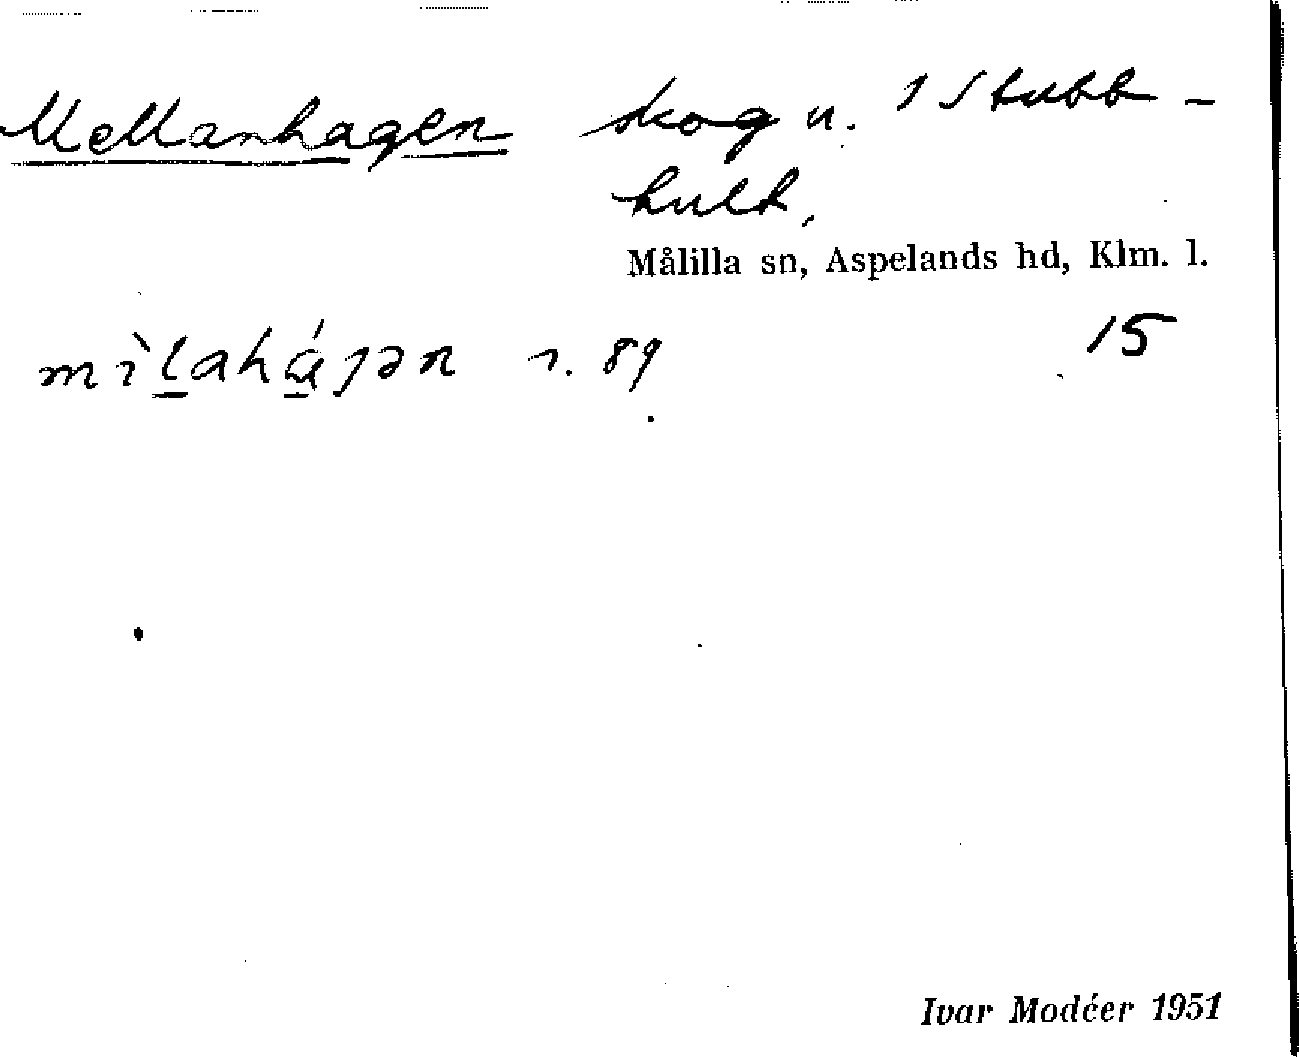 Mellanhagen skog n. 1 Stubb-
hult,
Målilla sn, Aspelands hd, Klm. l.
mìlahájən 1. 89 15
Ivar Modéer 1951